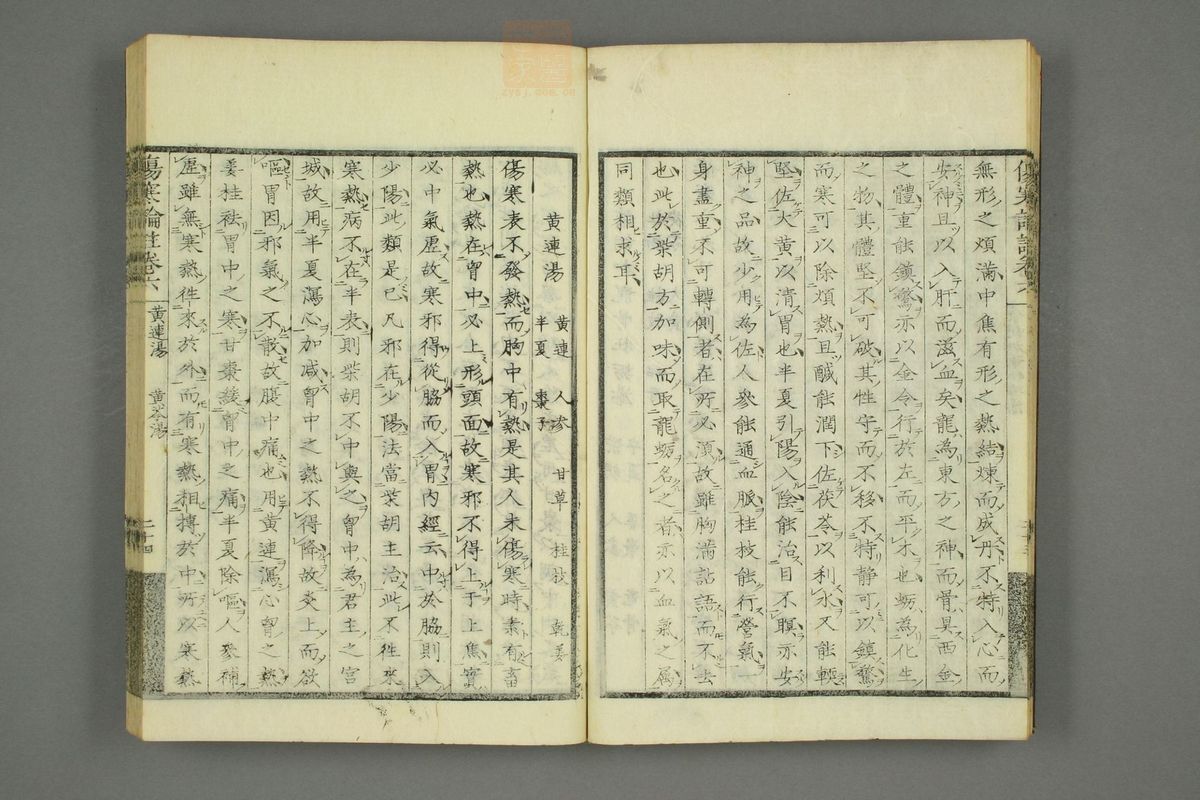 無形之煩滿中焦有形之熱結煉而成丹不特入心而
安神且以入肝而滋血矣龍為東方之神而骨具西金
之體重能鎮驚亦以金令行於左而平木也蠣為化生
之物其體堅不可破其性守而不移不特靜可以鎮驚
而寒可以除煩熱且鹹能潤下佐茯苓以利水又能軟
堅佐大黃以清胃也半夏引陽入陰能治目不瞑亦安
神之品故少用為佐人參能通血脈桂枝能行營氣一
身盡重不可轉側者在所必須故雖胸滿譫語而不去
也此於柴胡方加味而取龍蠣名之者亦以血氣之屬
同類相求耳
黃連湯
黃連 人參 甘草 桂枝 乾姜
半夏 棗子
傷寒表不發熱而胸中有熱是其人未傷寒時素有畜
熱也熱在胷中必上形頭面故寒邪不得上于上焦實
必中氣虛故寒邪得從脇而入胃內經云中於脇則入
少陽此類是已凡邪在少陽法當柴胡主治此不徃來
寒熱病不在半表則柴胡不中與之胷中為君主之宮
城故用半夏瀉心加減胷中之熱不得降故炎上而欲
嘔胃因邪氣之不散故腹中痛也用黃連瀉心胷之熱
姜桂祛胃中之寒甘棗緩胷中之痛半夏除嘔人參補
虛雖無寒熱徃來於外而有寒熱相摶於中所以寒熱
傷寒論註卷六
黃連湯
黃芩湯
二十四